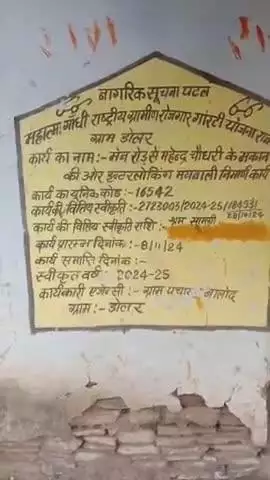 नागरिक सूचना पटल
महात्मा गाँधी राष्ट्रीय ग्रामीण रोजगार गारंटी योजना राज
ग्राम डोलर
कार्य का नाम :- मेन रोड़ से महेन्द्र चौधरी के मकान
की ओर इन्टरलोकिंग मयनाली निर्माण कार्य
कार्य का युनिक कोड :- 16542
कार्य की वित्तिय स्वीकृति :- 2723003/2024-25/184931
28/10/24
कार्य की वित्तिय स्वीकृति राशि :- श्रम सामग्री
कार्य प्रारम्भ दिनांक :- 8/11/24
कार्य समाप्ति दिनांक :-
स्वीकृत वर्ष 2024-25
कार्यकारी एजेन्सी :- ग्राम पंचा
ग्राम :- डोलर